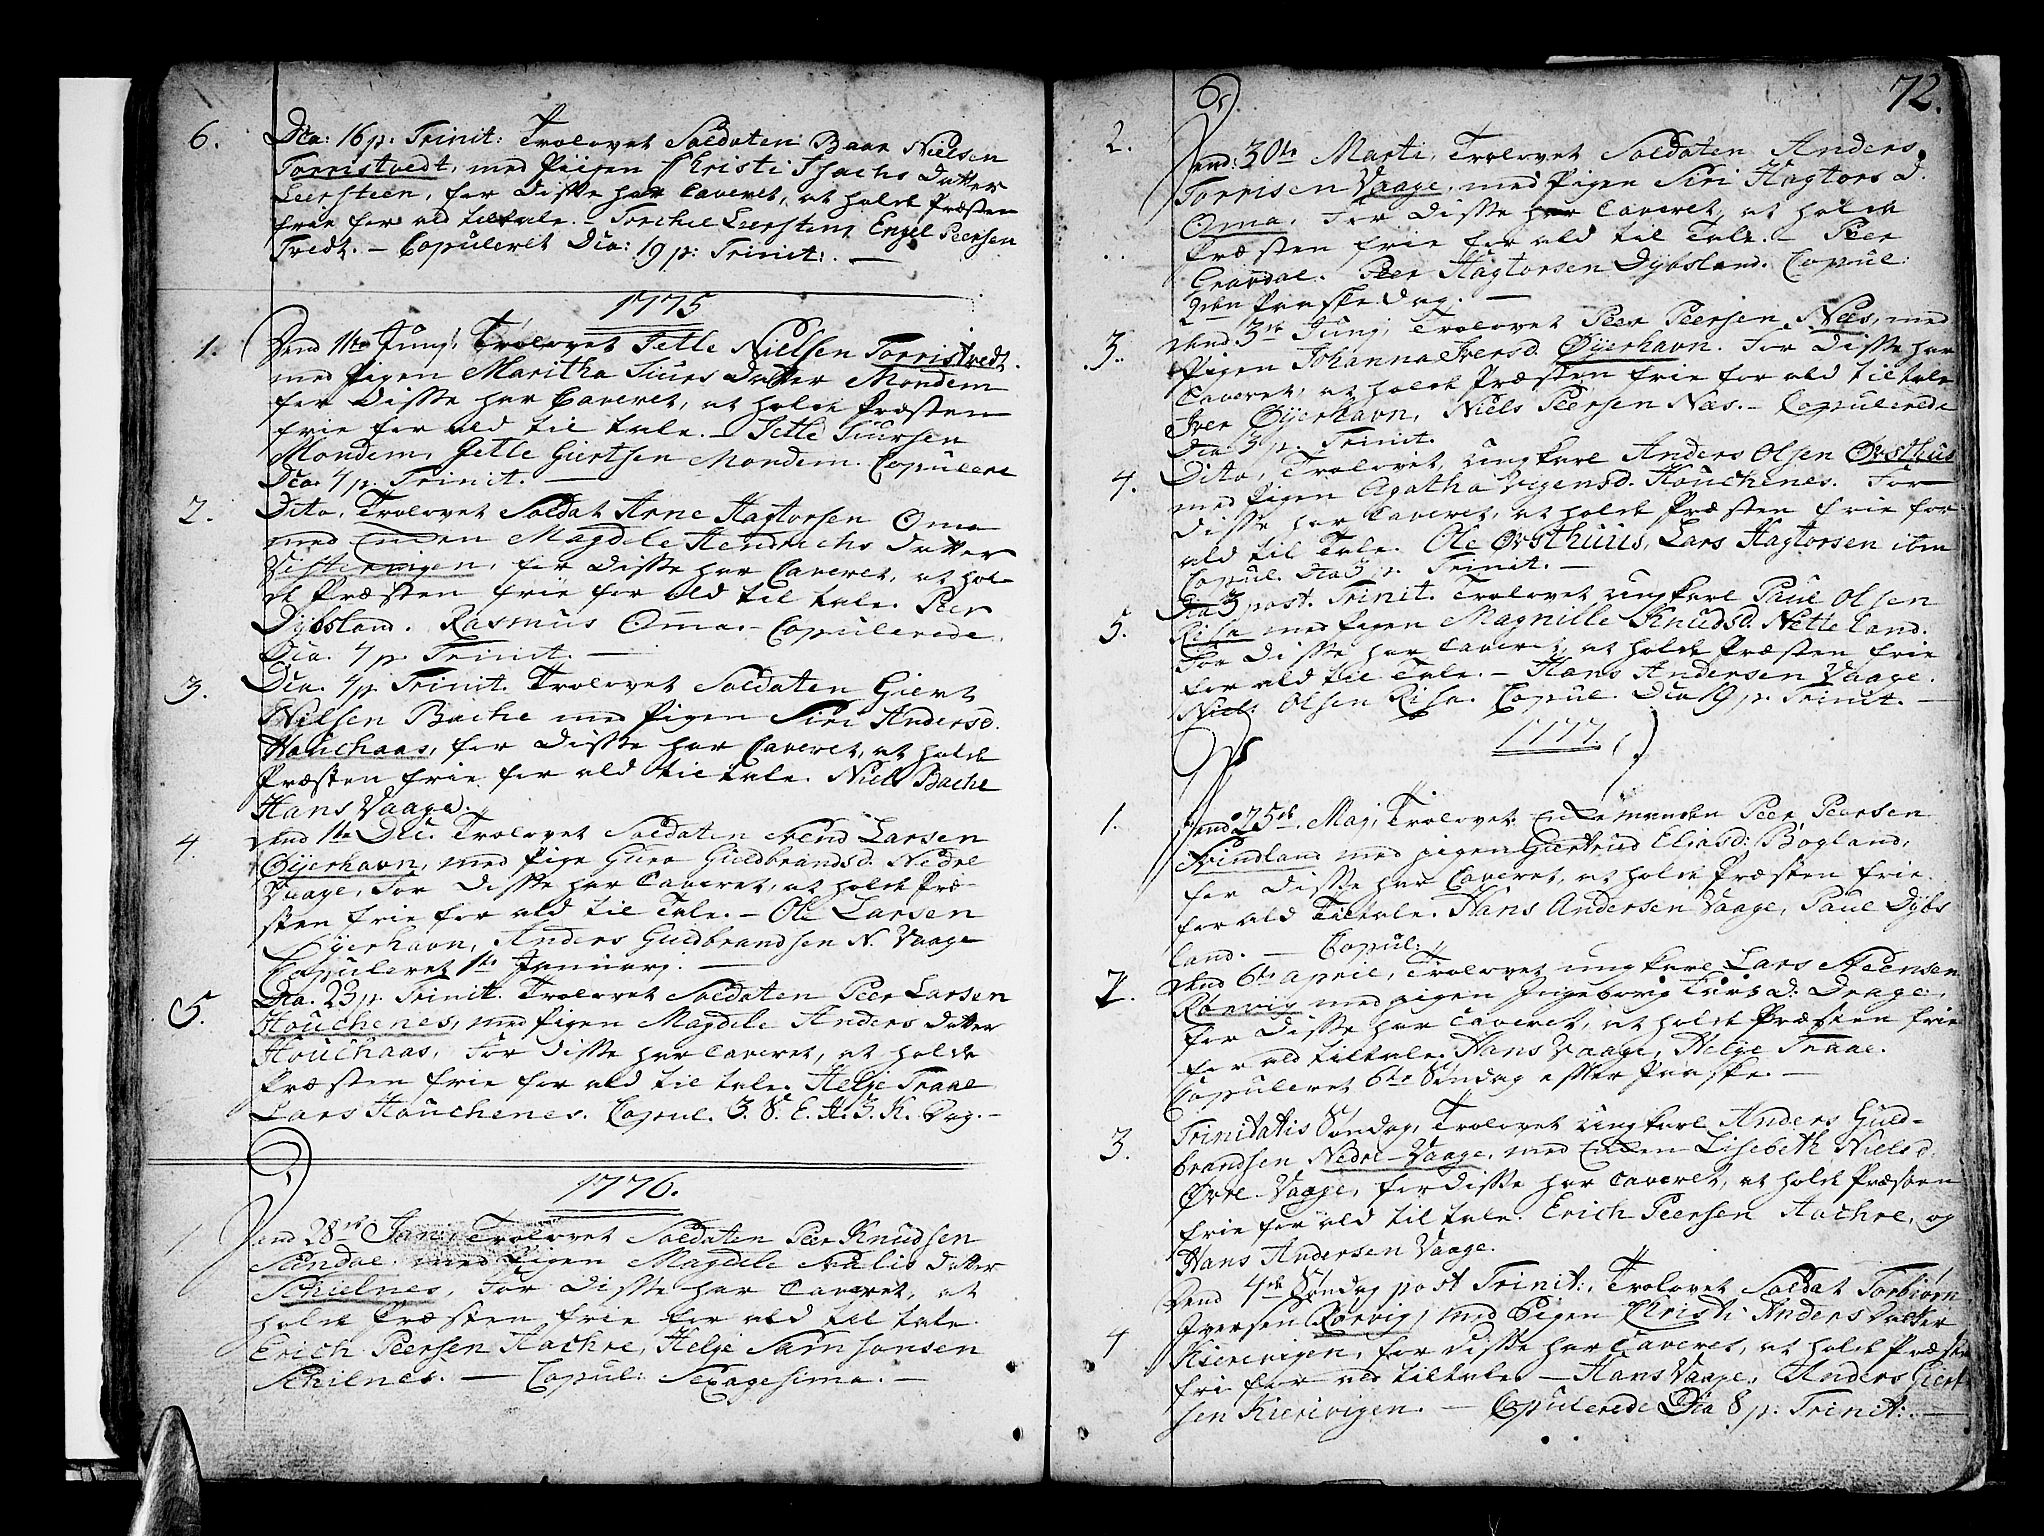 6. Dca: 16 p: Trinit: Trolovet Soldaten Baar Nielsen
Torristvedt, med Piigen Christi Isachs Datter
Leersteen, for Disse har Caveret, at holde Præsten
frie for ald tiltale. Torchel Leersteen, Engel Peersen
Tvedt. – Copuleret Dca: 19 p: Trinit: –
1775
1. Dend 11te Junj, Trolovet Jelle Nielsen Torristvedt
med Pigen Maritha Siurs Datter Mondem
for Disse har Caveret, at holde Præsten
frie for ald til tale. – Jelle Siursen
Mondem, Jelle Giertsen Mondem. Copulere
Dca. 4 p. Trinit. –
2. Dito, Trolovet Soldat Arne Hagtorsen Oma
med Enken Magdele Hendrichs Datter
Vistervigen, for Disse har Caveret, at hol-
de Præsten frie for ald til tale. Peer
Dybsland. Rasmus Oma. – Copulerede
Dca. 4 p. Trinit. –
3. Dca. 4 p. Trinit. Trolovet Soldaten Giert
Nilsen Bache med Pigen Siri Andersd.
Houchaas, for Disse har Caveret, at holde
Præsten frie for ald til tale. Niels Bache
Hans Vaage.
4. Dend 1te Dec. Trolovet Soldaten Svend Larsen
Øyerhavn, med Pige Guro Guldbrandsd. Nedre
Vaage, for Disse har Caveret, at holde Præ-
sten frie for ald til Tale. – Ole Larsen
Øyerhavn, Anders Guldbrandsen N. Vaage
Copuleret 1te Januarj. –
5. Dca. 23 p. Trinit. Trolovet Soldaten Peer Larsen
Houchenes, med Pigen Magdele Anders Datter
Houchaas, for Disse har Caveret, at holde
Præsten frie for ald til tale. Helje Traae
Lars Houchenes. Copul. 3. S. E. H. 3. K. Dag. –
1776.
1 Dend 28de Jan: Trolovet Soldaten Peer Knudsen
Sandae med Pigen Magdele Datter
Schielnes, for Disse har Caveret, at
holde Præsten frie for ald til tale.
Erich Peersen Aachre, Helje Samsonsen
Schielnes. – Copul: Sexagesima. –
72.
2. Dend: 30te Marti, Trolovet Soldaten Anders
Torrisen Vaage, med Pigen Siri Hagtors D.
Oma, for Disse har Caveret, at holde
Præsten frie for ald til Tale. – Peer
Peer Hagtorsen Dybsland. Copul:
2den Paaske Dag. –
3. Dend 3de Junj, Trolovet Peer Peersen Næs, med
Pigen Johanna Iversd. Øyerhavn. for Disse har
Caveret, at holde Præsten frie for ald til tale
Iver Øyerhavn, Niels Peersen Næs. – Copulerede
Dca 3 p. Trinit.
4. Dito, Trolovet, ungkarl Anders Olsen Øvsthus
med Pigen Agatha Houchenes. For
Disse har Caveret, at holde Præsten frie for
ald til Tale. Ole Øvsthuus, Lars Hagtorsen ibm
Copul. Dca 3 p. Trinit. –
5. Dca 3 post. Trinit. Trolovet ungkarl Paul Olsen
Risa med Pigen Magnille Knudsd. Netteland.
For Disse har Caveret, at holde Præsten frie
for ald til Tale. – Hans Andersen Vaage.
Niels Olsen Risa. Copul. Dca 19 p. Trinit. –
1777.
1. Dend 25de Maj, Trolovet Enkemanden Peer Peersen
Svindland med pigen Giertrud Eliasd: Bogland,
for Disse har Caveret, at holde Præsten frie
for ald Tiltale. Hans Andersen Vaage, Paul Dybs
land. – Copul:
2. Dend 6te April, Trolovet ungkarl Lars Steensen
Rørvig med pigen Ingeborig D: Drage,
for Disse har Caveret, at holde Præsten frie
for ald tiltale. Hans Vaage, Helje Traae.
Copuleret 6te Søndag efter Paaske. –
3. Trinitatis Søndag, Trolovet ungkarl Anders Guld-
brandsen Nedre-Vaage, med Enken Lisebeth Nielsd.
Øvre Vaage, for Disse har Caveret, at holde Præsten
frie for ald til tale. Erich Peersen Aachre, og
Hans Andersen Vaage.
4 Dend 4de Søndag post Trinit:, Trolovet Soldat Torbiørn
Iversen Rørvig, med Pigen Christi Anders Datter
Kierevigen, for Disse har Caveret, at holde Præsten
fri for ald tiltale. – Hans Vaage, Anders Giert
sen Kierevigen. – Copulerede Dca 8 p. Trinit: –